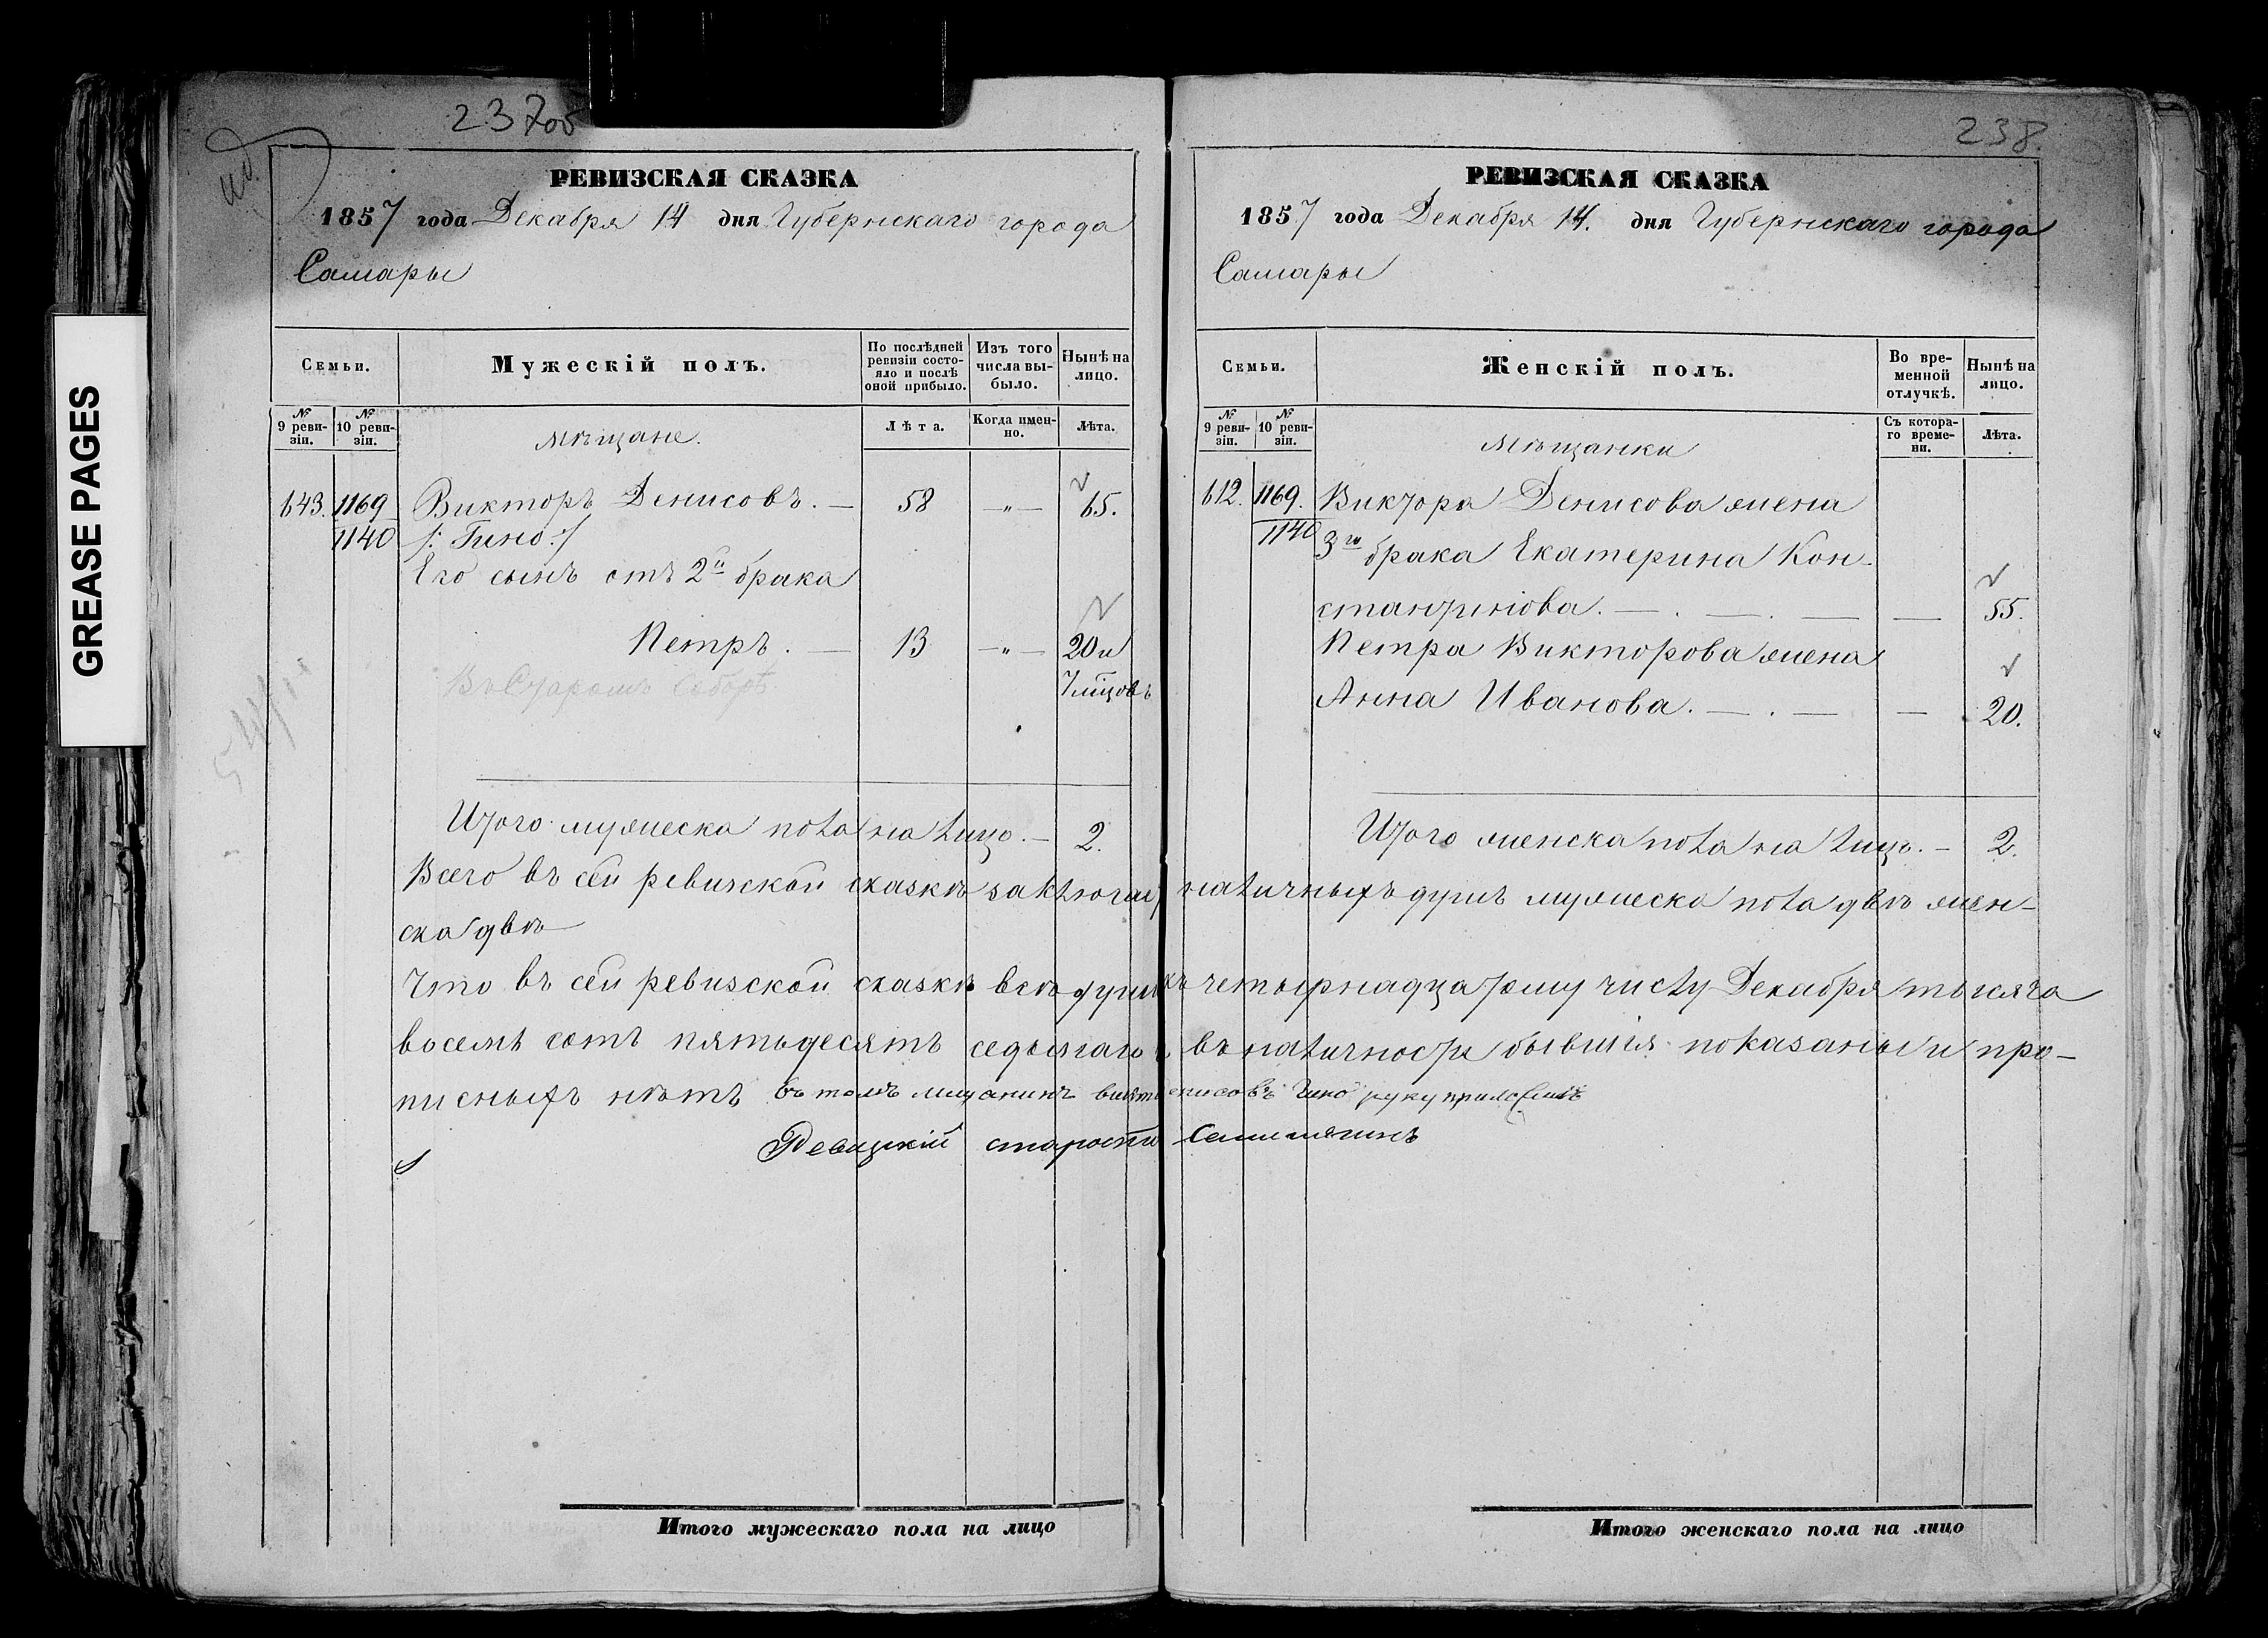 GREASE PAGES
237об
РЕВИЗСКАЯ СКАЗКА
1857 года Декабря 14 дня Губернскаго города
Самары
Семьи.
Мужескій полъ.
По послѣдней ревизіи состояло и послѣ оной прибыло.
Изъ того числа выбыло.
Нынѣ на лицо.
№ 9 ревизіи.
№ 10 ревизіи.
мѣщане.
Лѣта.
Когда именно.
Лѣта.
643. 1169 Викторъ Денисовъ. — 58 —"— 65.
1140 /: Гино :/
Его сынъ отъ 2й брака
Петръ. — 13 —"— 20 и
7 мѣцовъ
Въ Старомъ Соборѣ
Итого мужеска пола на лицо. — 2.
238.
РЕВИЗСКАЯ СКАЗКА
1857 года Декабря 14. дня Губернскаго города
Самары
Семьи.
Женскій полъ.
Во временной отлучкѣ.
Нынѣ на лицо.
№ 9 ревизіи.
№ 10 ревизіи.
Мѣщанки
Съ котораго времени.
Лѣта.
612. 1169. Виктора Денисова жена
1140 3го брака Екатерина Кон-
стантинова. — . — . — — 55.
Петра Викторова жена
Анна Иванова. — . — — 20.
Итого женска пола на лицо. — 2.
Всего въ сей ревизской сказкѣ заключает наличныхъ душъ мужеска пола двѣ жен-
ска двѣ
Что въ сей ревизской сказкѣ всѣ души къ четырнадцатому числу Декабря тысяча
восемь сотъ пятьдесятъ седьмаго въ наличности бывшія показаны и про-
писныхъ нѣтъ въ томъ мищанинъ виктъ енисовъ Гино руку приложилъ
Ревизкій староста
Итого мужескаго пола на лицо
Итого женскаго пола на лицо